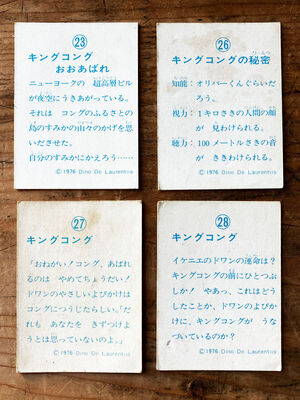 23
キングコング
おおあばれ
ニューヨークの 超高層ビル
が夜空にうきあがっている。
それは コングのふるさとの
島のすみかの山々のかげを思
いださせた。
自分のすみかにかえろう……
©1976 Dino De Laurentiis
26
キングコングの秘密
知能：オリバーくんぐらいだ
ろう。
視力：1キロさきの人間の顔
が 見わけられる。
聴力：100メートルさきの音
が ききわけられる。
©1976 Dino De Laurentiis
27
キングコング
「おねがい！コング、あばれ
るのは やめてちょうだい！
ドワンのやさしいよびかけは
コングにつうじたらしい。「だ
れも あなたを きずつけよ
うとは思っていないのよ。」
©1976 Dino De Laurentiis
28
キングコング
イケニエのドワンの運命は？
キングコングの前にひとつぶ
しか！ やあっ、これはどう
したことか、ドワンのよびか
けに、キングコングが うな
づいているのか？
©1976 Dino De Laurentiis